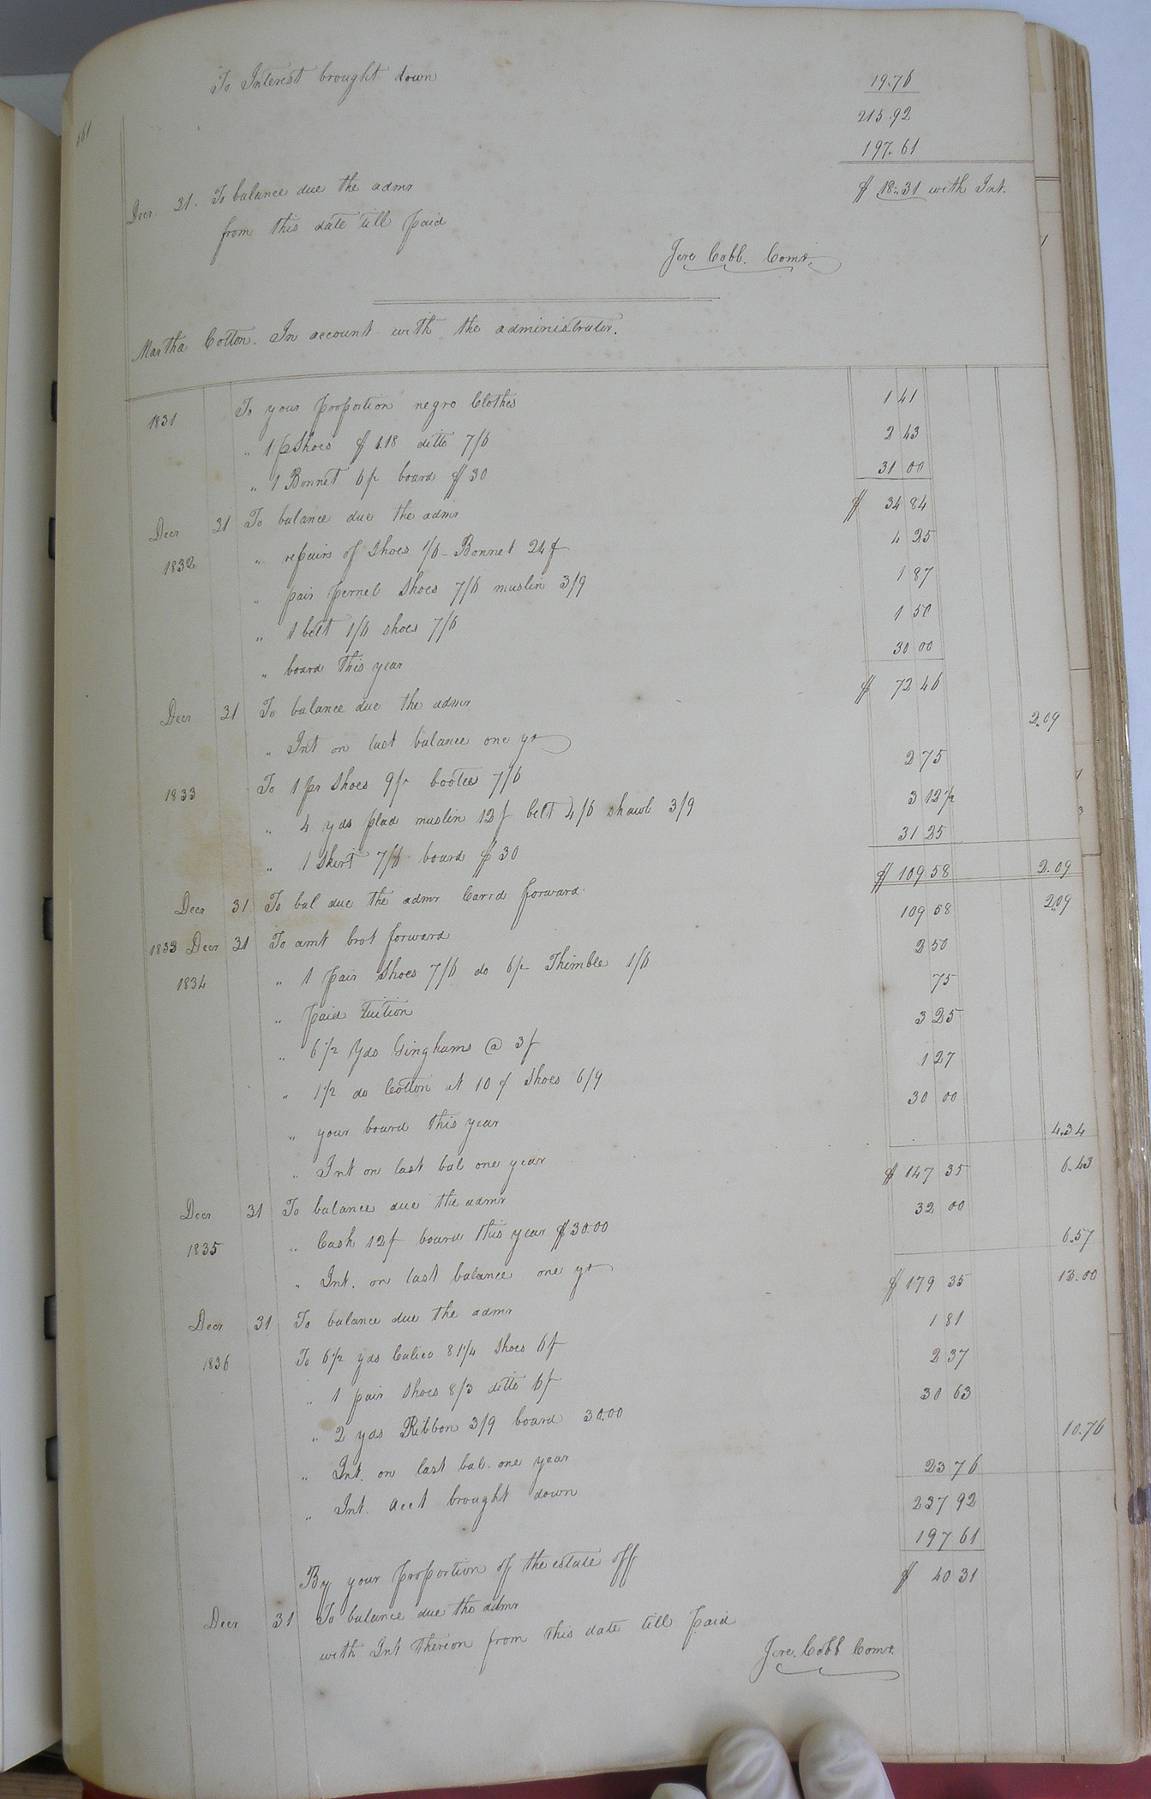 661
To Interest brought down 19.76
215.92
197.61
Decr 31. To balance due the admr $ 18.31 with Int.
from this date till paid
Jere Cobb. Comr.
Martha Cotton. In account with the administrator.
1831 To your proportion negro Clothes 1 41
" 1 p Shoes $1.18 ditto 7/6 2 43
" 1 Bonnet 6/- board $30 31 00
Decr 31 To balance due the admr $ 34 84
1832 " repairs of Shoes 1/6 - Bonnet 24/ 4 25
" pair pernel Shoes 7/6 muslin 3/9 1 87
" 1 belt 1/6 shoes 7/6 1 50
" board this year 30 00
Decr 31 To balance due the admr $ 72 46
" Int on last balance one yr 2.09
1833 To 1 pr Shoes 9/- bootees 7/6 2 75
" 4 yds plad muslin 12/ belt 4/6 shawl 3/9 3 12½
" 1 Skirt 7/6 board $30 31 25
Decr 31 To bal due the admr Carrd forward $ 109 58 2.09
1833 Decr 31 To amt brot forward 109 58 2.09
1834 " 1 pair Shoes 7/6 do 6/- Thimble 1/6 2 50
" paid Tuition 75
" 6½ Yds Ginghams @ 3/ 3 25
" 1½ do Cotton at 10 / Shoes 6/9 1 27
" your board this year 30 00
" Int on last bal one year 4.34
Decr 31 To balance due the admr $ 147 35 6.43
1835 " Cash 12/ board this year $30.00 32 00
" Int. on last balance one yr 6.57
Decr 31 To balance due the admr $ 179 35 13.00
1836 To 6½ yds Calico 8 1/4 Shoes 6/ 1 81
" 1 pair Shoes 8/3 ditto 6/ 2 37
" 2 yds Ribbon 3/9 board 30.00 30 63
" Int. on last bal. one year 10.76
" Int. acct brought down 23 76
237 92
By your proportion of the estate off 197 61
Decr 31 To balance due the admr $ 40 31
with Int thereon from this date till paid
Jere. Cobb Comr.